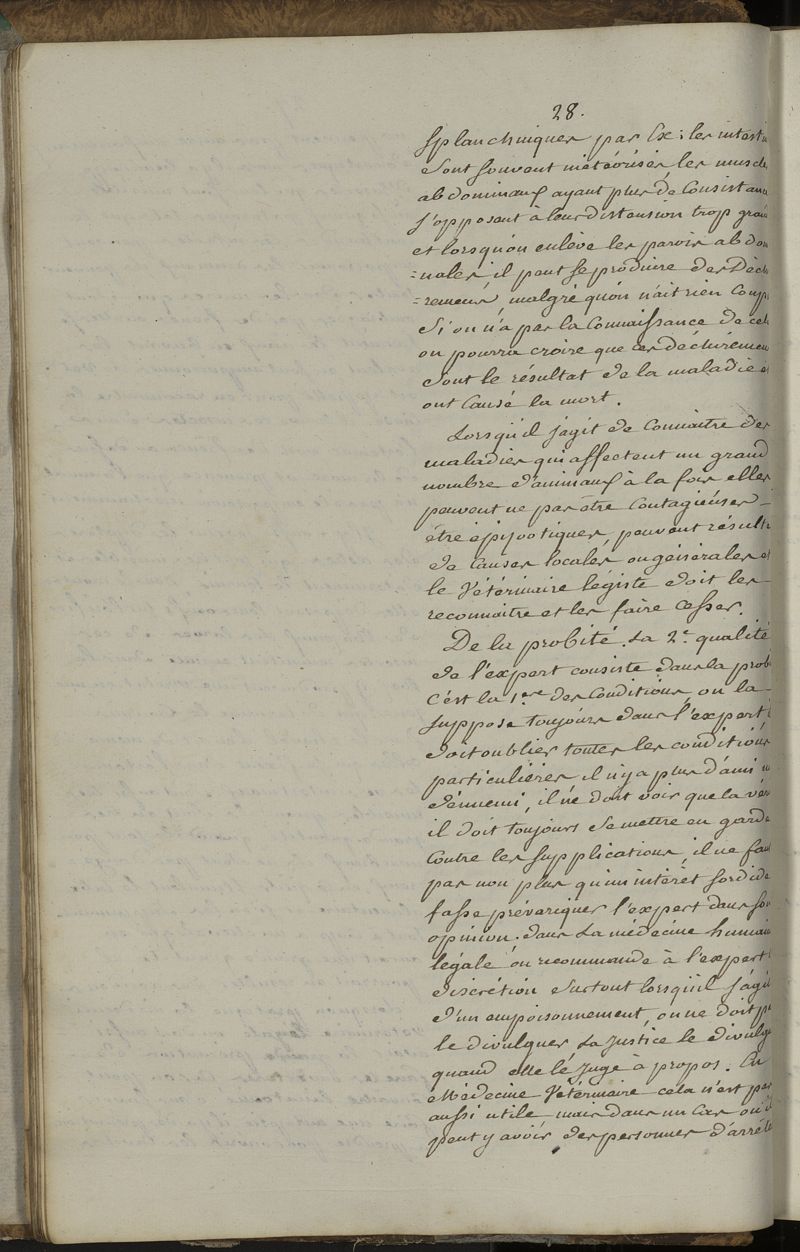 28.
Splanchniques par Ex: les intesti
sont souvent météorisés les muscle
abdominaux ayant plus de Consistance
s'opposent à leur distension trop gran
et lorsqu'on enlève les parois abdom
=nales, il peut se produire des Déch
=remens, malgré qu'on n'ait rien Coup
Si on n'a pas la Connaissance de cel
on pourra croire que ces déchiremen
sont le résultat de la maladie et
ont Causé la mort.
Lorsqu'il s'agit de Connaitre des
maladies qui affectent un grand
nombre d'animaux à la fois elles
peuvent ne pas être Contagieuses
être épizootiques, peuvent résult
de Causes locales ou générales et
le Vétérinaire légiste doit les
reconnaitre et les faire Cesser.
De la probité. La 2.e qualité
de l'expert consiste dans la prob
C'est la 1.ere des Conditions on la
suppose toujours dans l'expert i
doit oublier toutes les conditions
particulières il n'y a plus d'ami n
d'ennemi, il ne doit voir que la vér
il doit toujours se mettre en garde
Contre les supplications, il ne fau
pas non plus qu'un intérêt sordide
fasse prévariquer l'expert dans son
opinion. dans la médecine humain
légale on recommande à l'expert l
discrétion surtout lorsqu'il s'agit
d'un empoisonnement, on ne doit p
le divulguer la Justice le divulg
quand elle le Juge à propos. En
Médecine Vétérinaire cela n'est pas
aussi utile mais dans un Cas où i
peut y avoir des personnes d'arrêté